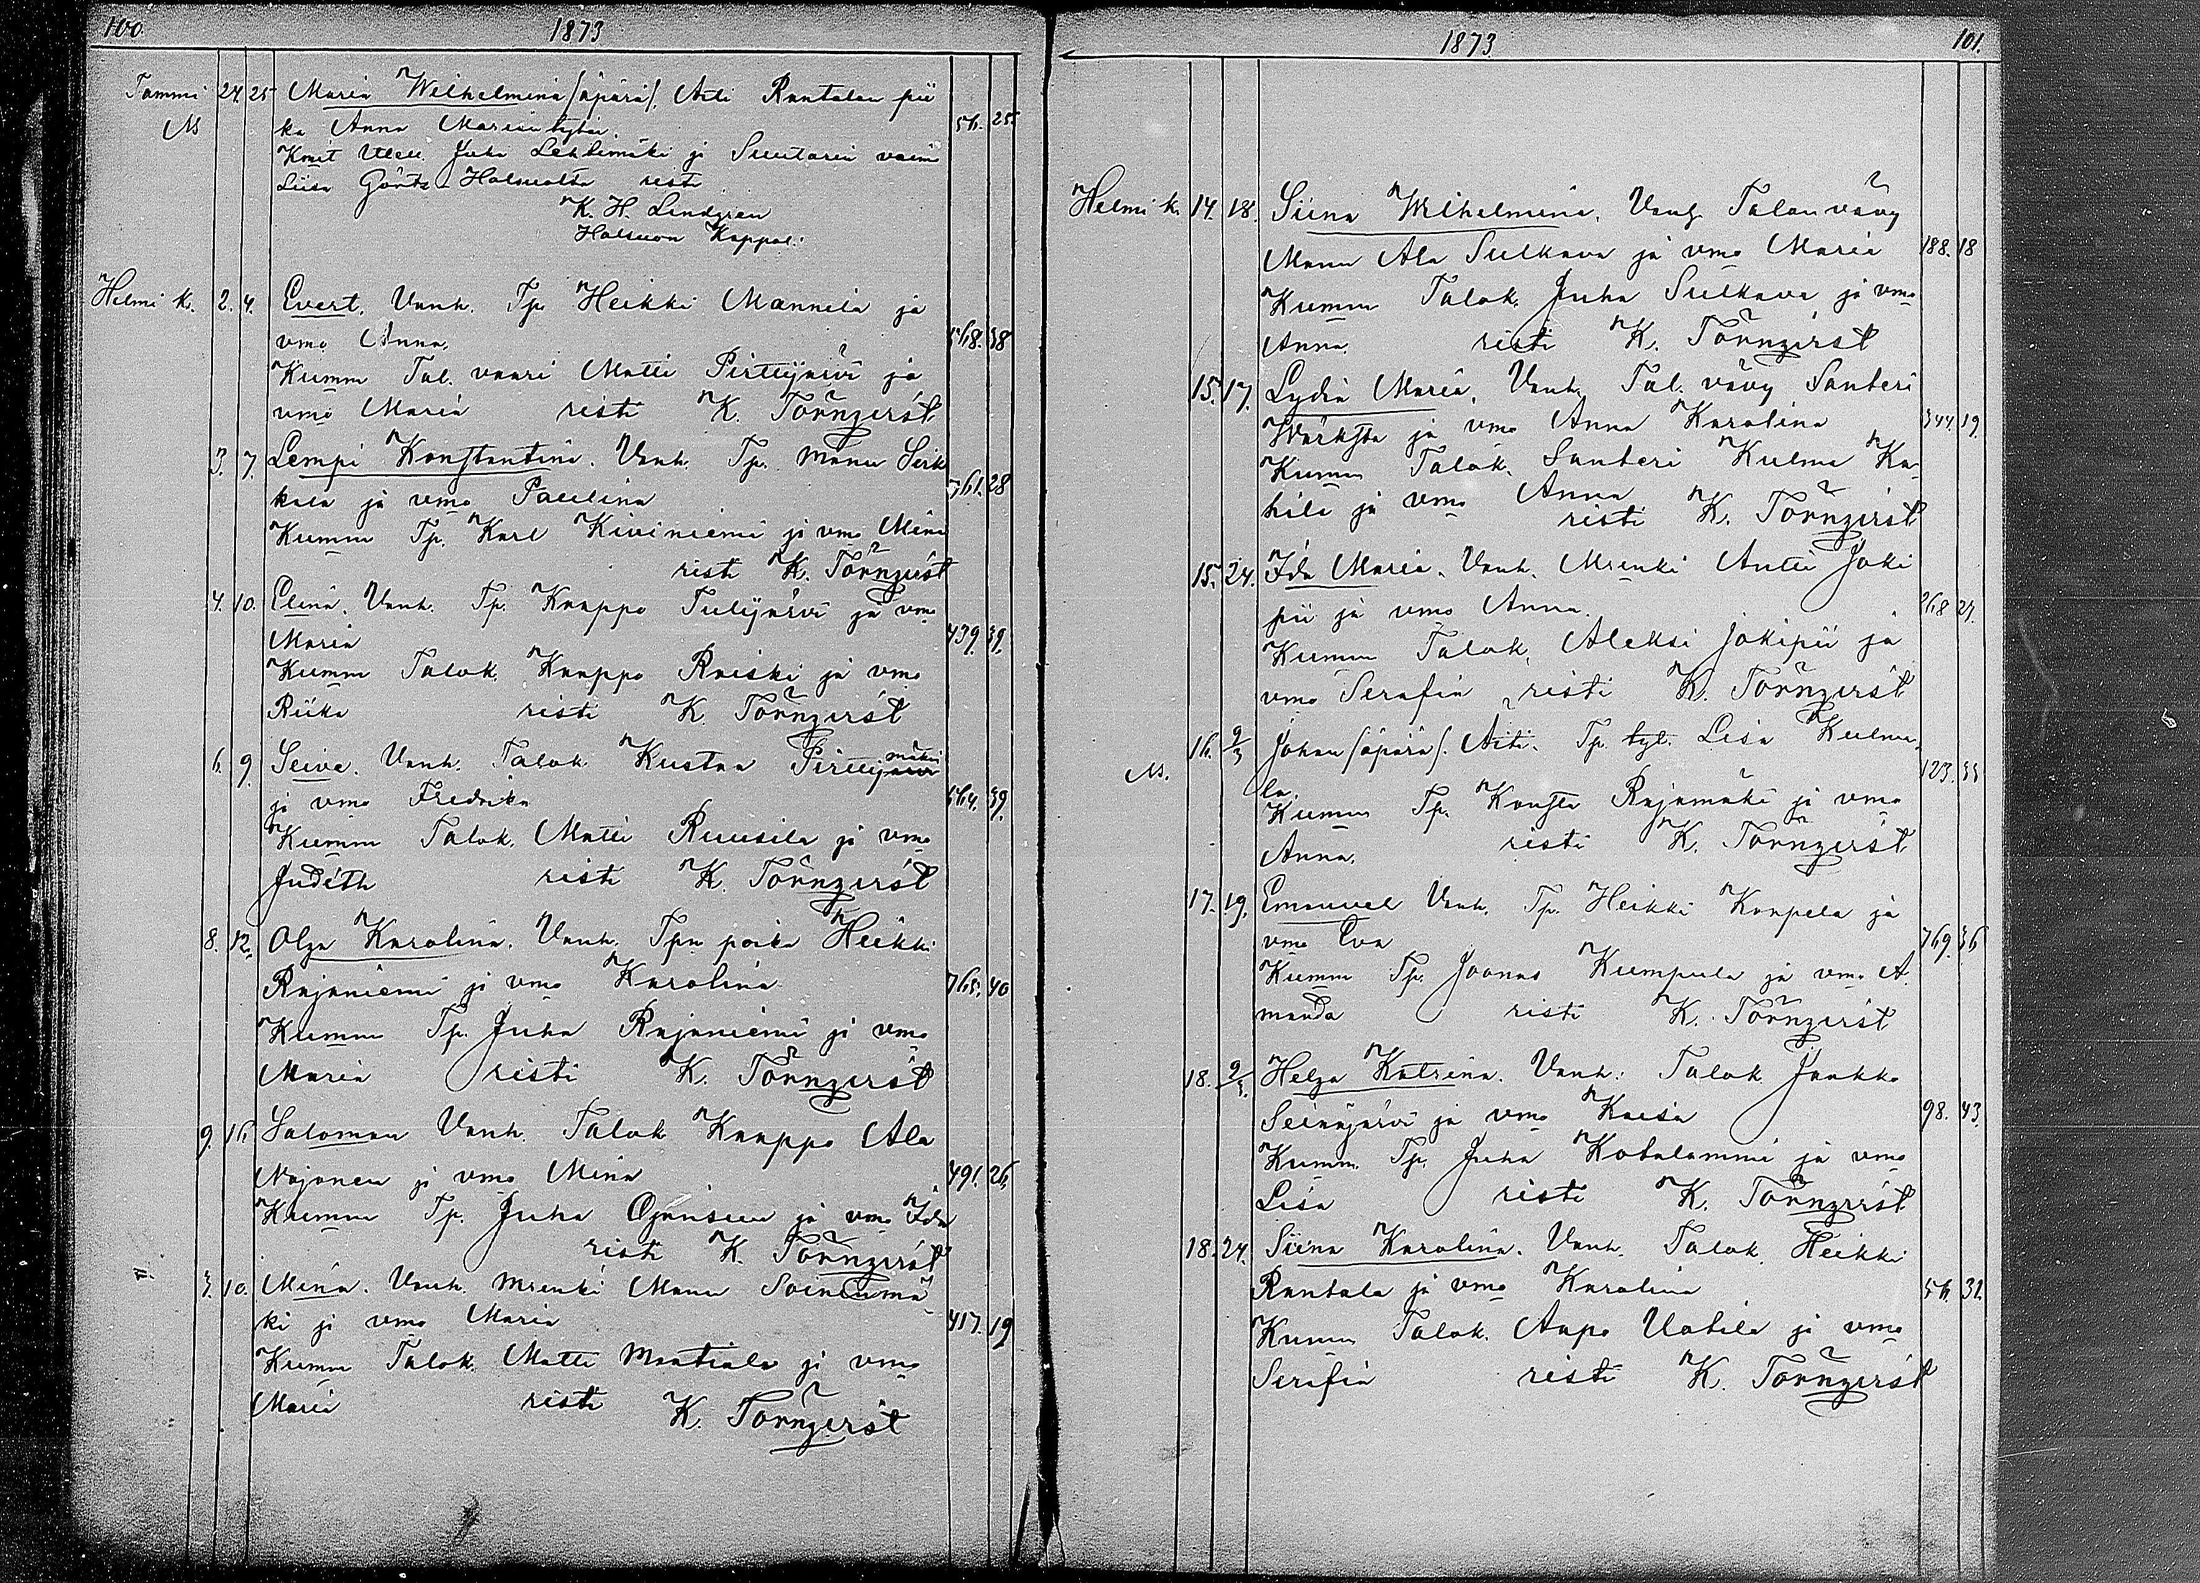 100. 1873
Tammi 24. 25 Maria Wilhelmina /äpärä/. Äiti Rantalan pii
ka Anna Marian tytär. 56. 25.
Juha Lehtimäki ja Suutarin vaimo
Liisa Halsualta risti
K. H. Lindgren
Halsuon Kappal.
Helmi k. 2. 4. Evert. Vanh. Tp. Heikki Mannila ja
vmo Anna. 568. 38
Kumm Tal. vaari Matti Pirttijärvi ja
vmo Maria risti K. Törnqvist
3. 7. Lempi Konstantina. Vanh. Tp. Manu Seik
kala ja vmo Paulina 761. 28
Kumm Tp. Karl Kiviniemi ja vmo Mina
risti K. Törnqvist
4. 10. Elina. Vanh. Tp. Kaappo Tulijärvi ja vmo
Maria 439. 39.
Kumm Talok. Kaappo Raiski ja vmo
Riika risti K. Törnqvist
6. 9. Seiva. Vanh. Talok Kustaa Pirttijärvi mäki
ja vmo Fredrika 564. 39.
Kumm Talok. Matti Ruusila ja vmo
Judith risti K. Törnqvist
8. 12. Olga Karolina. Vanh. Tpn poika Heikki
Rajaniemi ja vmo Karolina 765. 40
Kumm Tp. Juha Rajaniemi ja vmo
Maria risti K. Törnqvist
9. 16. Salomon Vanh. Talok Kaappo Ala
Nojonen ja vmo Mina 491. 26.
Kumm Tp. Juha Ojansuu ja vmo Ida
risti K. Törnqvist
3. 10. Mina. Vanh. Mrenki Manu Soininmä
ki ja vmo Maria 417. 19
Kumm Talok. Matti Mantiala ja vmo
Maria risti K. Törnqvist
1873 101.
Helmi k. 14. 18. Siina Wilhelmina. Vanh. Talon vävy
Manu Ala Sulkava ja vmo Maria 188. 18
Kumm Talok. Juha Sulkava ja vmo
Anna. risti K. Törnqvist
15. 17. Lydia Maria. Vanh. Tal. vävy Santeri
ja vmo Anna Karolina 344. 19.
Kumm Talok. Santeri Kulma Ka
hila ja vmo Anna
risti K. Törnqvist
15. 24. Ida Maria. Vanh. Mrenki Antti Joki
pii ja vmo Anna. 268 27.
Kumm Talok. Aleksi Jokipii ja
vmo Serafia risti K. Törnqvist
16. 2/3 Johan /äpärä/. Äiti. Tp. tyt. Lisa Kulma
la. 123. 33
Kumm Tp. Konsta Rajamäki ja vmo
Anna. risti K. Törnqvist
17. 19. Emanuel Vanh. Tp. Heikki Kanpela ja
vmo Eva 769. 36
Kumm Tp. Joonas Kumpula ja vmo A
manda risti K. Törnqvist
18. 2/3. Helga Katrina. Vanh. Talok Jaakko
Seinäjärvi ja vmo Kaisa 98. 43.
Kumm. Tp. Juha Kotalammi ja vmo
Lisa risti K. Törnqvist
18. 24. Siina Karolina. Vanh. Talok. Heikki
Rantala ja vmo Karolina 56. 31.
Kumm Talok. Aapo Uotila ja vmo
Serafia risti K. Törnqvist